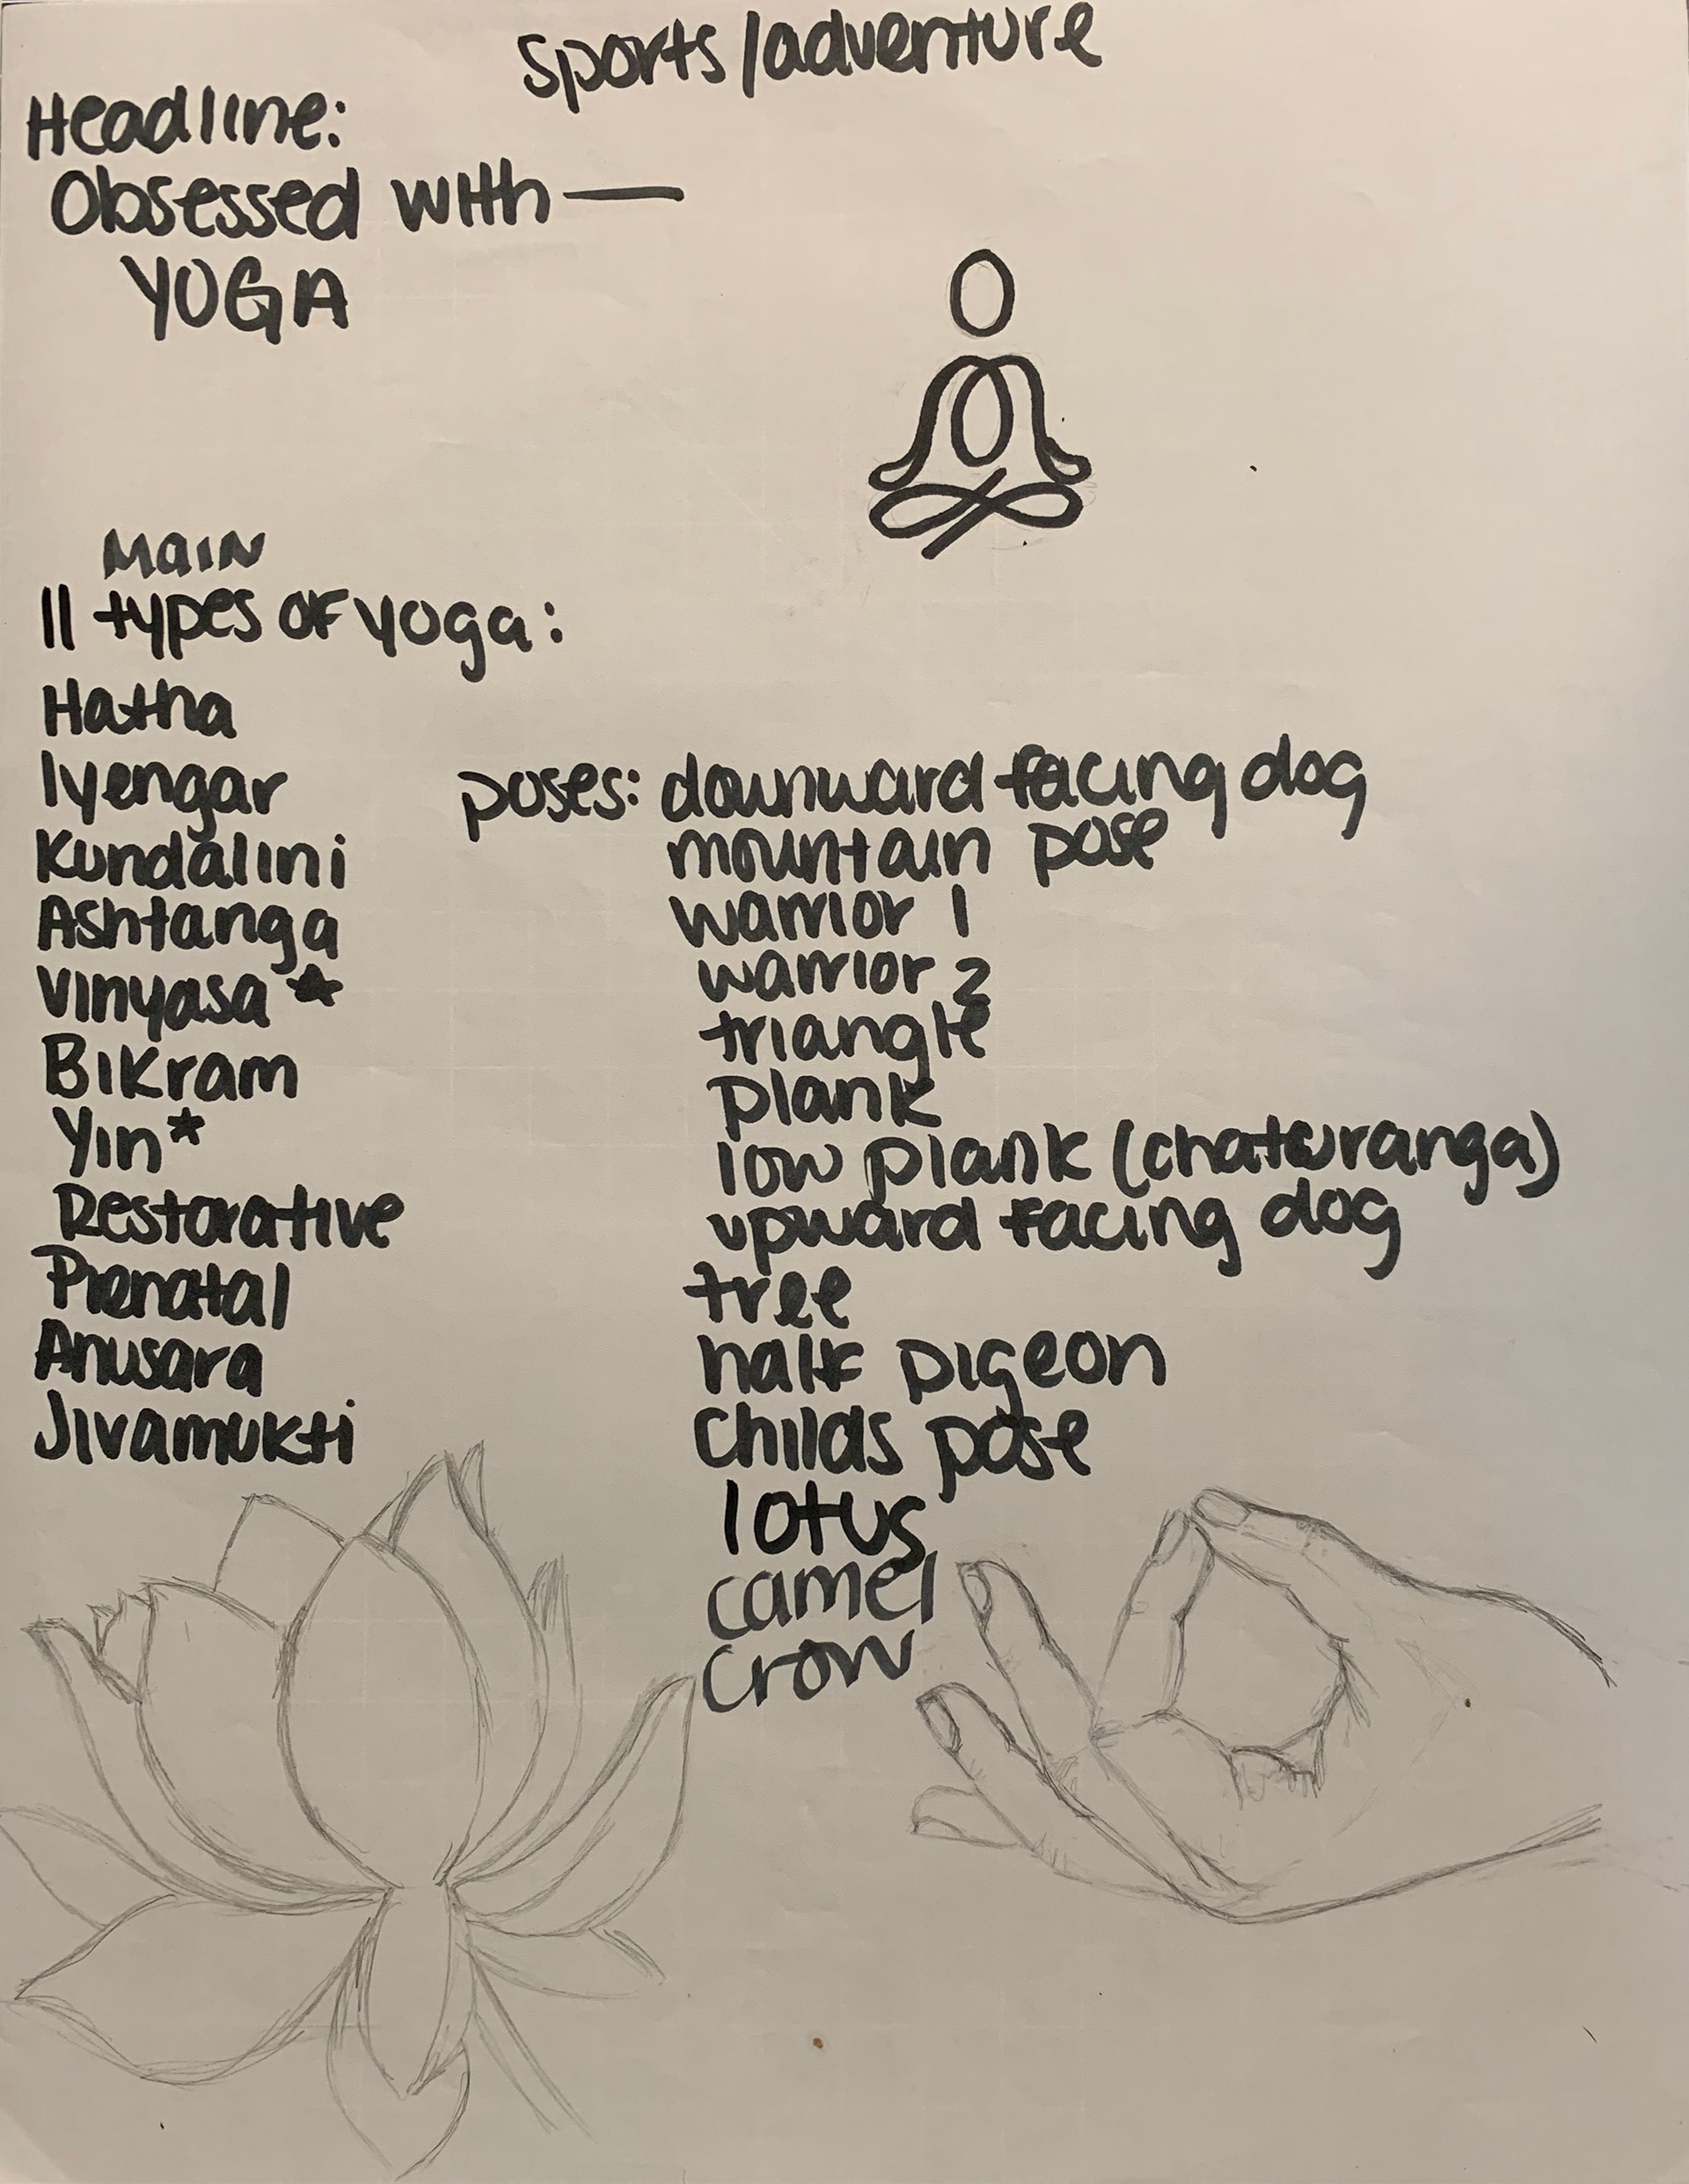 Sports/adventure
Headline:
Obsessed with —
YOGA
MAIN
11 types of yoga:
Hatha
Iyengar
Kundalini
Ashtanga
Vinyasa *
Bikram
Yin*
Restorative
Prenatal
Anusara
Jivamukti
poses: downward facing dog
mountain pose
warrior 1
warrior 2
triangle
plank
low plank (chaturanga)
upward facing dog
tree
half pigeon
childs pose
lotus
camel
crow